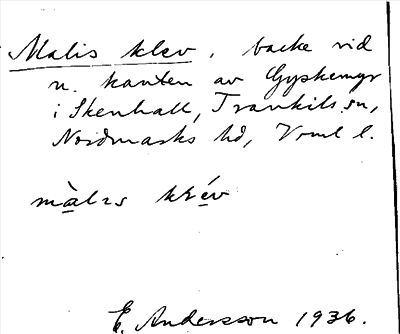 Malis klev, backe vid
n. kanten av Gyskemyr
i Skenhall, Trankils sn,
Nordmarks hd, Vrml l.
màlıs klév
E. Andersson 1936.